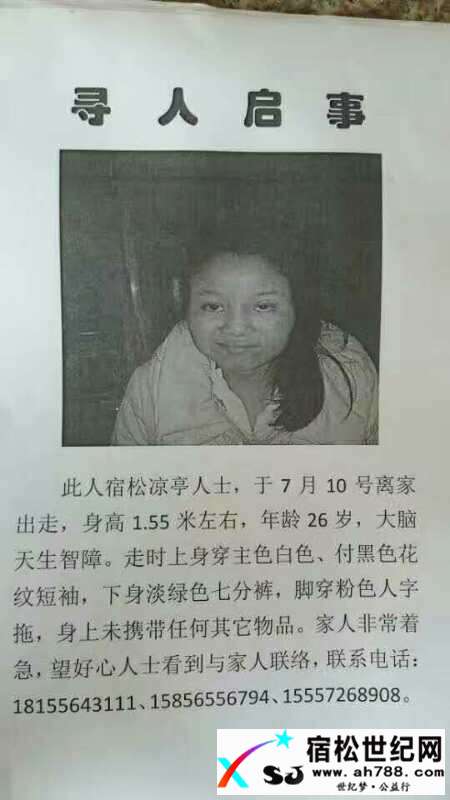 寻人启事
此人宿松凉亭人士，于 7 月 10 号离家
出走，身高 1.55 米左右，年龄 26 岁，大脑
天生智障。走时上身穿主色白色、付黑色花
纹短袖，下身淡绿色七分裤，脚穿粉色人字
拖，身上未携带任何其它物品。家人非常着
急，望好心人士看到与家人联络，联系电话：
18155643111、15856556794、15557268908。
XSJ
宿松世纪网
www.ah788.com
世纪梦·公益行